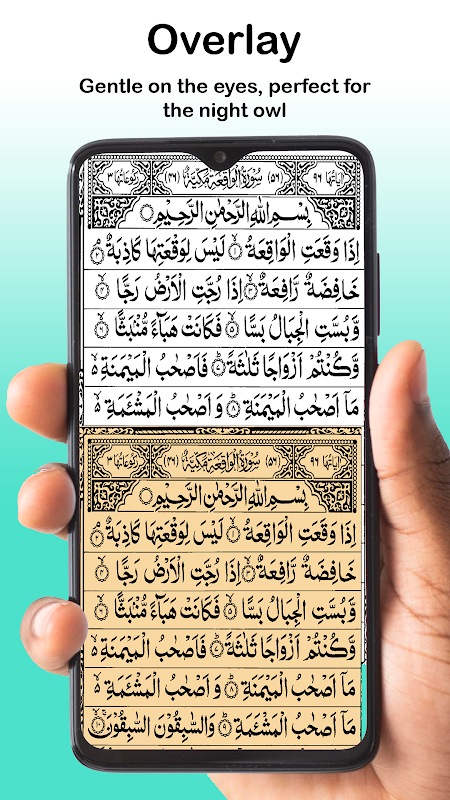 Overlay
Gentle on the eyes, perfect for
the night owl
اٰیَاتُہَا ٩٦ (٥٦) سُوْرَةُ الْوَاقِعَةِ مَكِّيَّةٌ (٤٦) رُكُوْعَاتُہَا ٣
بِسْمِ اللّٰهِ الرَّحْمٰنِ الرَّحِيْمِ
اِذَا وَقَعَتِ الْوَاقِعَةُ ۙ۝١ لَيْسَ لِوَقْعَتِهَا كَاذِبَةٌ ۘ۝٢
خَافِضَةٌ رَّافِعَةٌ ۙ۝٣ اِذَا رُجَّتِ الْاَرْضُ رَجًّا ۙ۝٤
وَّبُسَّتِ الْجِبَالُ بَسًّا ۙ۝٥ فَكَانَتْ هَبَآءً مُّنْۢبَثًّا ۙ۝٦
وَّكُنْتُمْ اَزْوَاجًا ثَلٰثَةً ؕ۝٧ فَاَصْحٰبُ الْمَيْمَنَةِ ۙ۬
مَاۤ اَصْحٰبُ الْمَيْمَنَةِ ؕ۝٨ وَ اَصْحٰبُ الْمَشْـَٔمَةِ ۙ۬
اٰیَاتُہَا ٩٦ (٥٦) سُوْرَةُ الْوَاقِعَةِ مَكِّيَّةٌ (٤٦) رُكُوْعَاتُہَا ٣
بِسْمِ اللّٰهِ الرَّحْمٰنِ الرَّحِيْمِ
اِذَا وَقَعَتِ الْوَاقِعَةُ ۙ۝١ لَيْسَ لِوَقْعَتِهَا كَاذِبَةٌ ۘ۝٢
خَافِضَةٌ رَّافِعَةٌ ۙ۝٣ اِذَا رُجَّتِ الْاَرْضُ رَجًّا ۙ۝٤
وَّبُسَّتِ الْجِبَالُ بَسًّا ۙ۝٥ فَكَانَتْ هَبَآءً مُّنْۢبَثًّا ۙ۝٦
وَّكُنْتُمْ اَزْوَاجًا ثَلٰثَةً ؕ۝٧ فَاَصْحٰبُ الْمَيْمَنَةِ ۙ۬
مَاۤ اَصْحٰبُ الْمَيْمَنَةِ ؕ۝٨ وَ اَصْحٰبُ الْمَشْـَٔمَةِ ۙ۬
مَاۤ اَصْحٰبُ الْمَشْـَٔمَةِ ؕ۝٩ وَالسّٰبِقُوْنَ السّٰبِقُوْنَ ۙ۝١٠